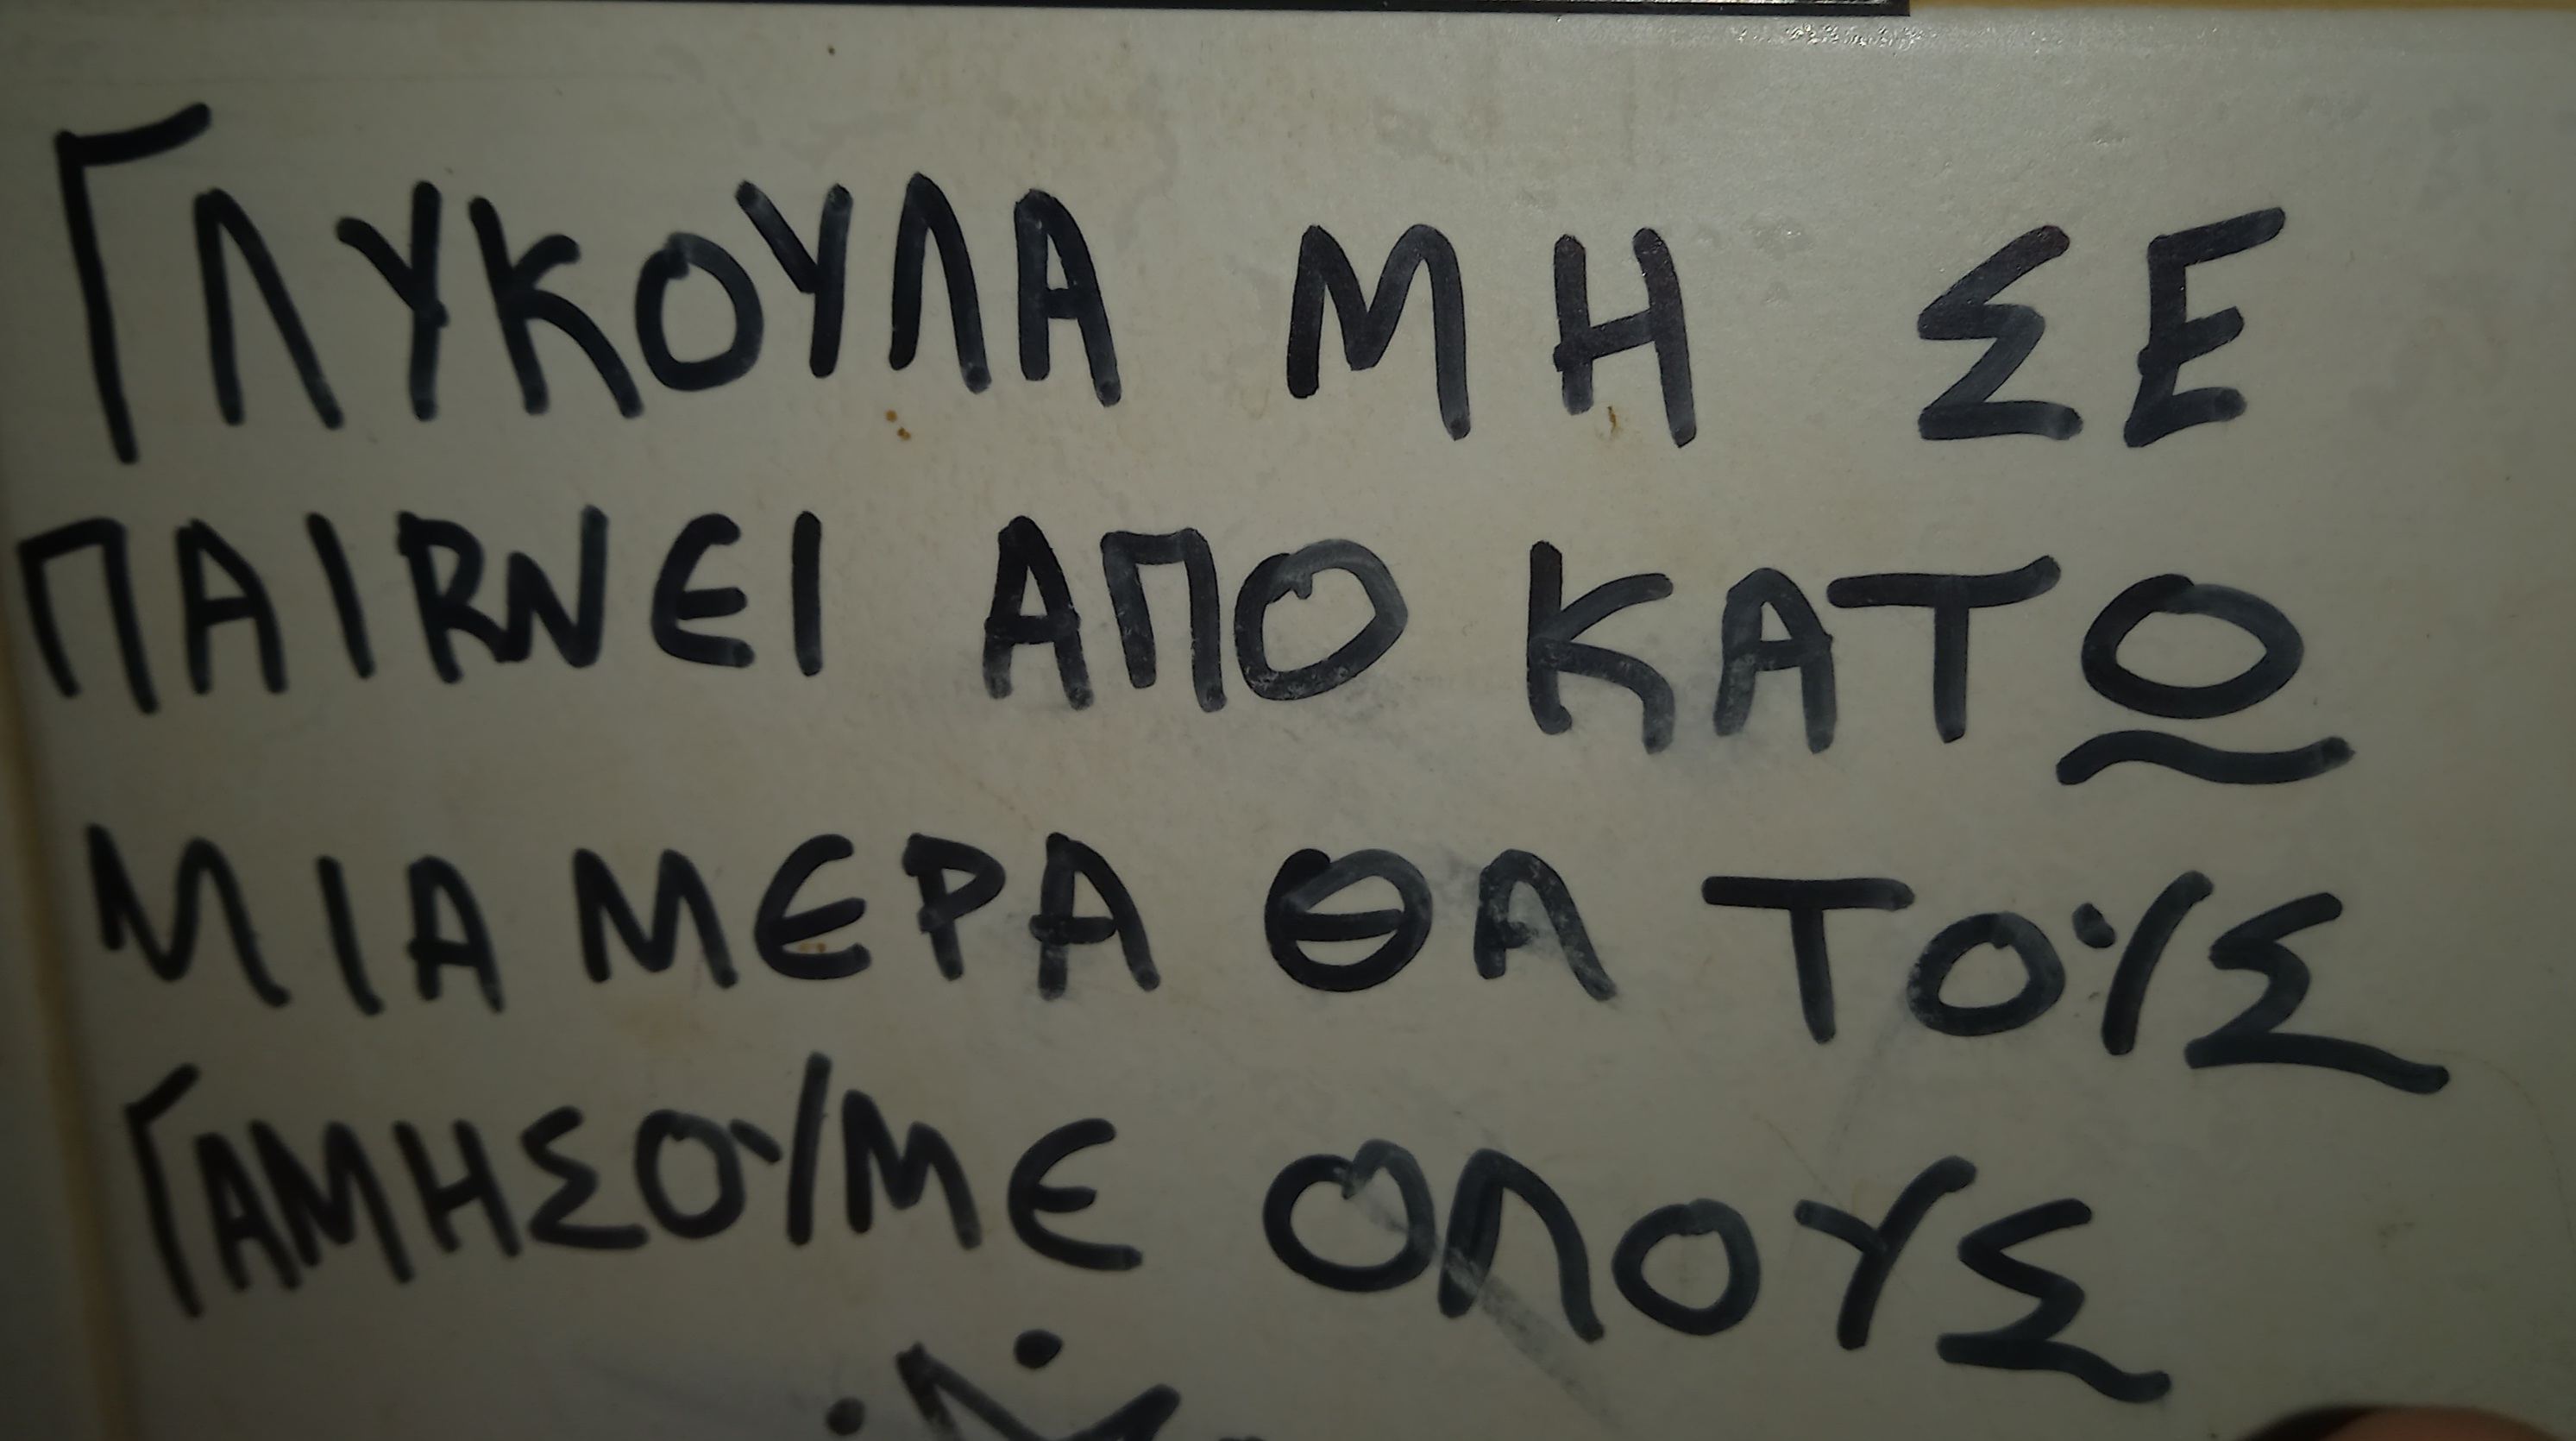 ΓΛΥΚΟΥΛΑ ΜΗ ΣΕ
ΠΑΙΡΝΕΙ ΑΠΟ ΚΑΤΩ
ΜΙΑ ΜΕΡΑ ΘΑ ΤΟΥΣ
ΓΑΜΗΣΟΥΜΕ ΟΛΟΥΣ